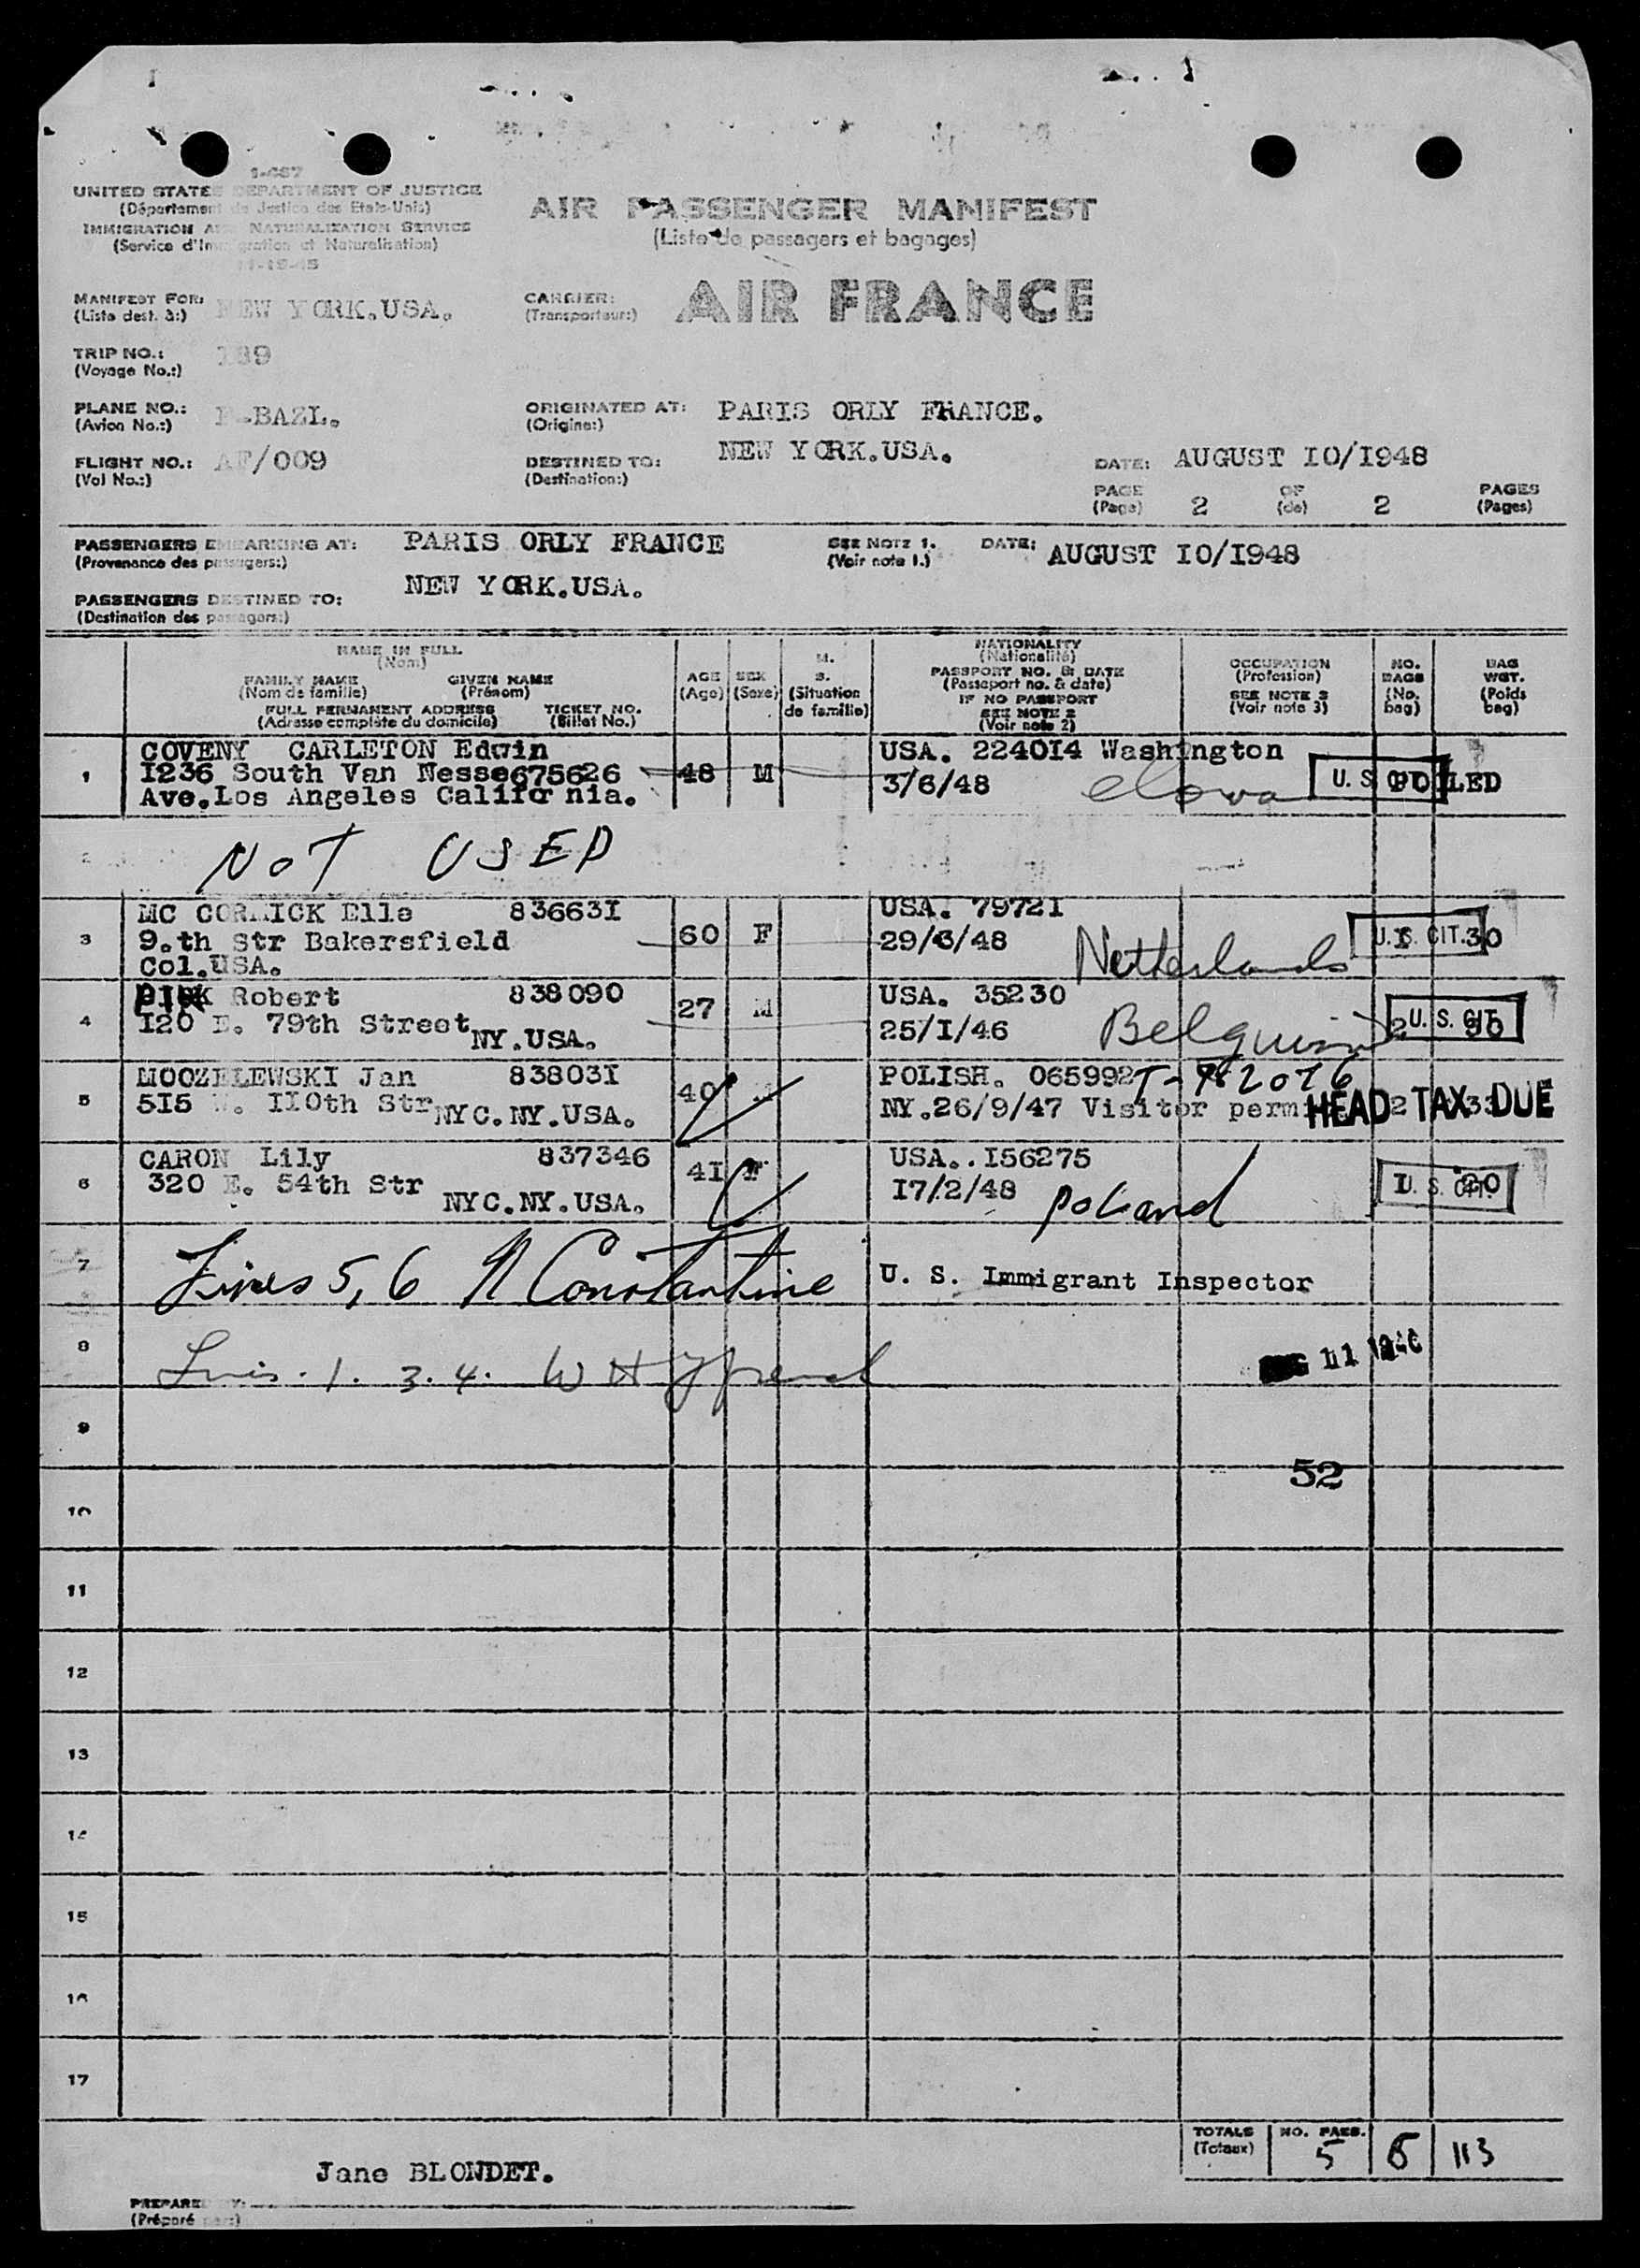 1-467
UNITED STATES DEPARTMENT OF JUSTICE
(Département de Justice des Etats-Unis)
IMMIGRATION AND NATURALIZATION SERVICE
(Service d'Immigration et Naturalisation)
AIR PASSENGER MANIFEST
(Liste de passagers et bagages)
MANIFEST FOR: NEW YORK.USA.
(Liste dest. à:)
CARRIER: AIR FRANCE
(Transporteur:)
TRIP NO.: I39
(Voyage No.:)
PLANE NO.: F-BAZL.
(Avion No.:)
ORIGINATED AT: PARIS ORLY FRANCE.
(Origine:)
FLIGHT NO.: AF/009
(Vol No.:)
DESTINED TO: NEW YORK.USA.
(Destination:)
DATE: AUGUST I0/I948
PAGE 2 OF 2 PAGES
(Page) (de) (Pages)
PASSENGERS EMBARKING AT: PARIS ORLY FRANCE
(Provenance des passagers:)
SEE NOTE 1.
(Voir note 1.)
DATE: AUGUST I0/I948
PASSENGERS DESTINED TO: NEW YORK.USA.
(Destination des passagers:)
NAME IN FULL
(Nom)
FAMILY NAME GIVEN NAME
(Nom de famille) (Prénom)
FULL PERMANENT ADDRESS TICKET NO.
(Adresse complète du domicile) (Billet No.)
AGE
(Age)
SEX
(Sexe)
M.
S.
(Situation
de famille)
NATIONALITY
(Nationalité)
PASSPORT NO. & DATE
(Passeport no. & date)
IF NO PASSPORT
SEE NOTE 2
(Voir note 2)
OCCUPATION
(Profession)
SEE NOTE 3
(Voir note 3)
NO.
BAGS
(No.
bag)
BAG
WGT.
(Poids
bag)
1 COVENY CARLETON Edwin USA. 224014 Washington
I236 South Van Nesse675626 48 M 3/6/48 U. S. LED
Ave.Los Angeles California.
2 NOT USED
3 MC CORMICK Elle 83663I 60 F USA. 7972I
9.th Str Bakersfield 29/6/48 Netherlands U. S. CIT. 30
Col.USA.
4 Robert 838090 27 M USA. 35230
I20 E. 79th Street NY.USA. 25/I/46 Belguim 2 U. S. CIT. 30
5 MOOZELEWSKI Jan 83803I 40 M POLISH. 065992 T-982076
5I5 W. II0th Str NYC.NY.USA. NY.26/9/47 Visitor perm HEAD TAX DUE 2
6 CARON Lily 837346 4I F USA..I56275
320 E. 54th Str NYC.NY.USA. I7/2/48 Poland I U. S. CIT. 20
7 Lines 5, 6 N Constantine U. S. Immigrant Inspector
8 Lines. 1. 3. 4. W H AUG 11 1948
9
52
10
11
12
13
14
15
16
17
TOTALS NO. PAES. 5 8 113
(Totaux)
Jane BLONDET.
PREPARED BY:
(Préparé par:)